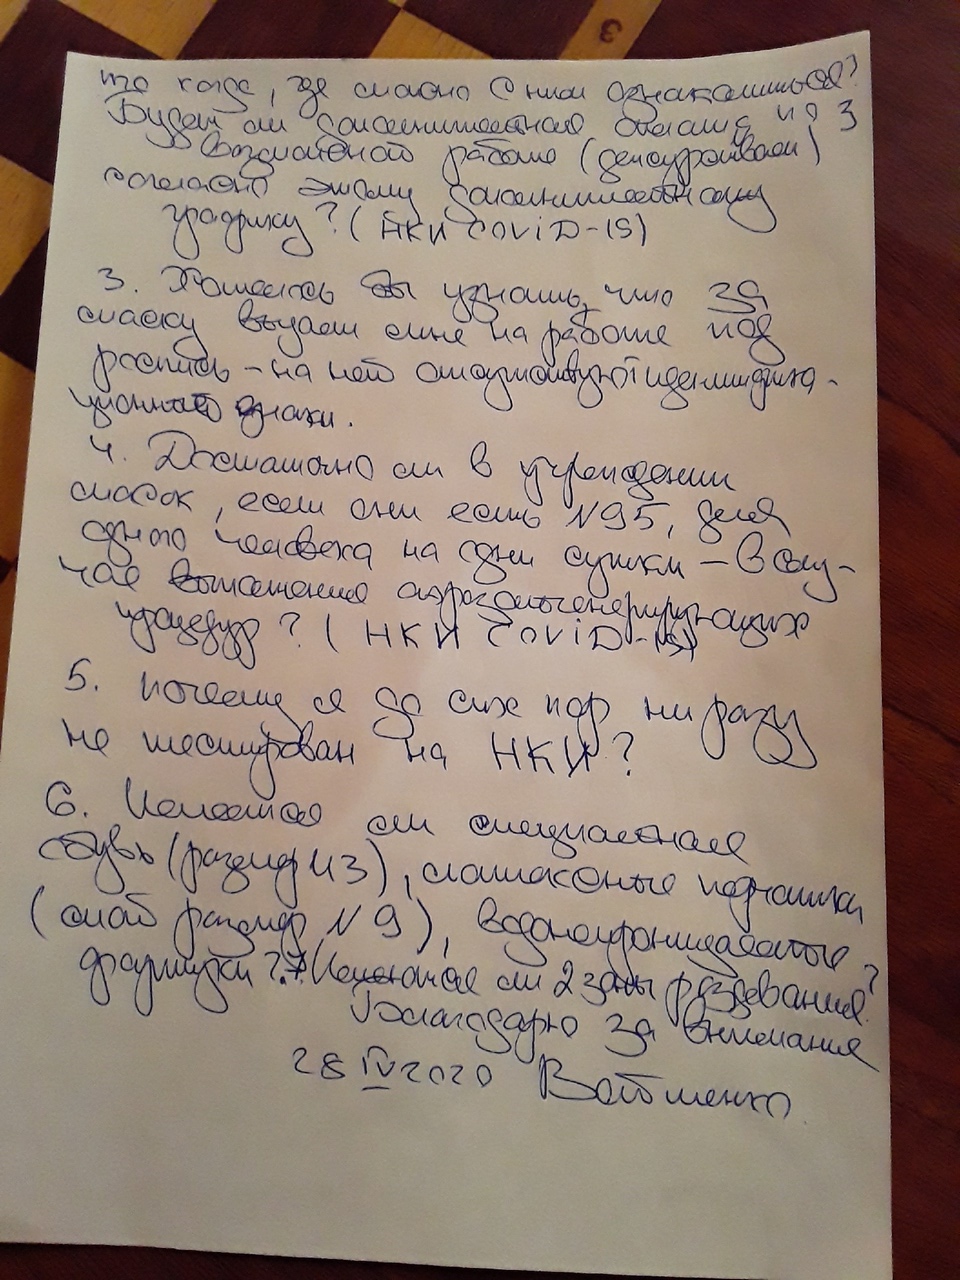 3
что когда, где можно с ним ознакомиться?
Будет ли дополнительная оплата по 3
возможной работе (дежурствам)
согласно этому дополнительному
графику? (НКИ COViD-19)
3. Хотелось бы узнать, что за
маску выдали мне на работе под
роспись – на ней отсутствуют идентифика-
ционные знаки.
4. Достаточно ли в учреждении
масок, если они есть N95, для
одного человека на одни сутки – в слу-
чае выполнения аэрозольгенерирующих
процедур? (НКИ COViD-19)
5. Почему я до сих пор ни разу
не тестирован на НКИ?
6. Имеется ли специальная
обувь (размер 43), латексные перчатки
(мой размер N 9), водонепроницаемые
фартуки? Имеются ли 2 зоны раздевания?
Благодарю за внимание
28 IV 2020